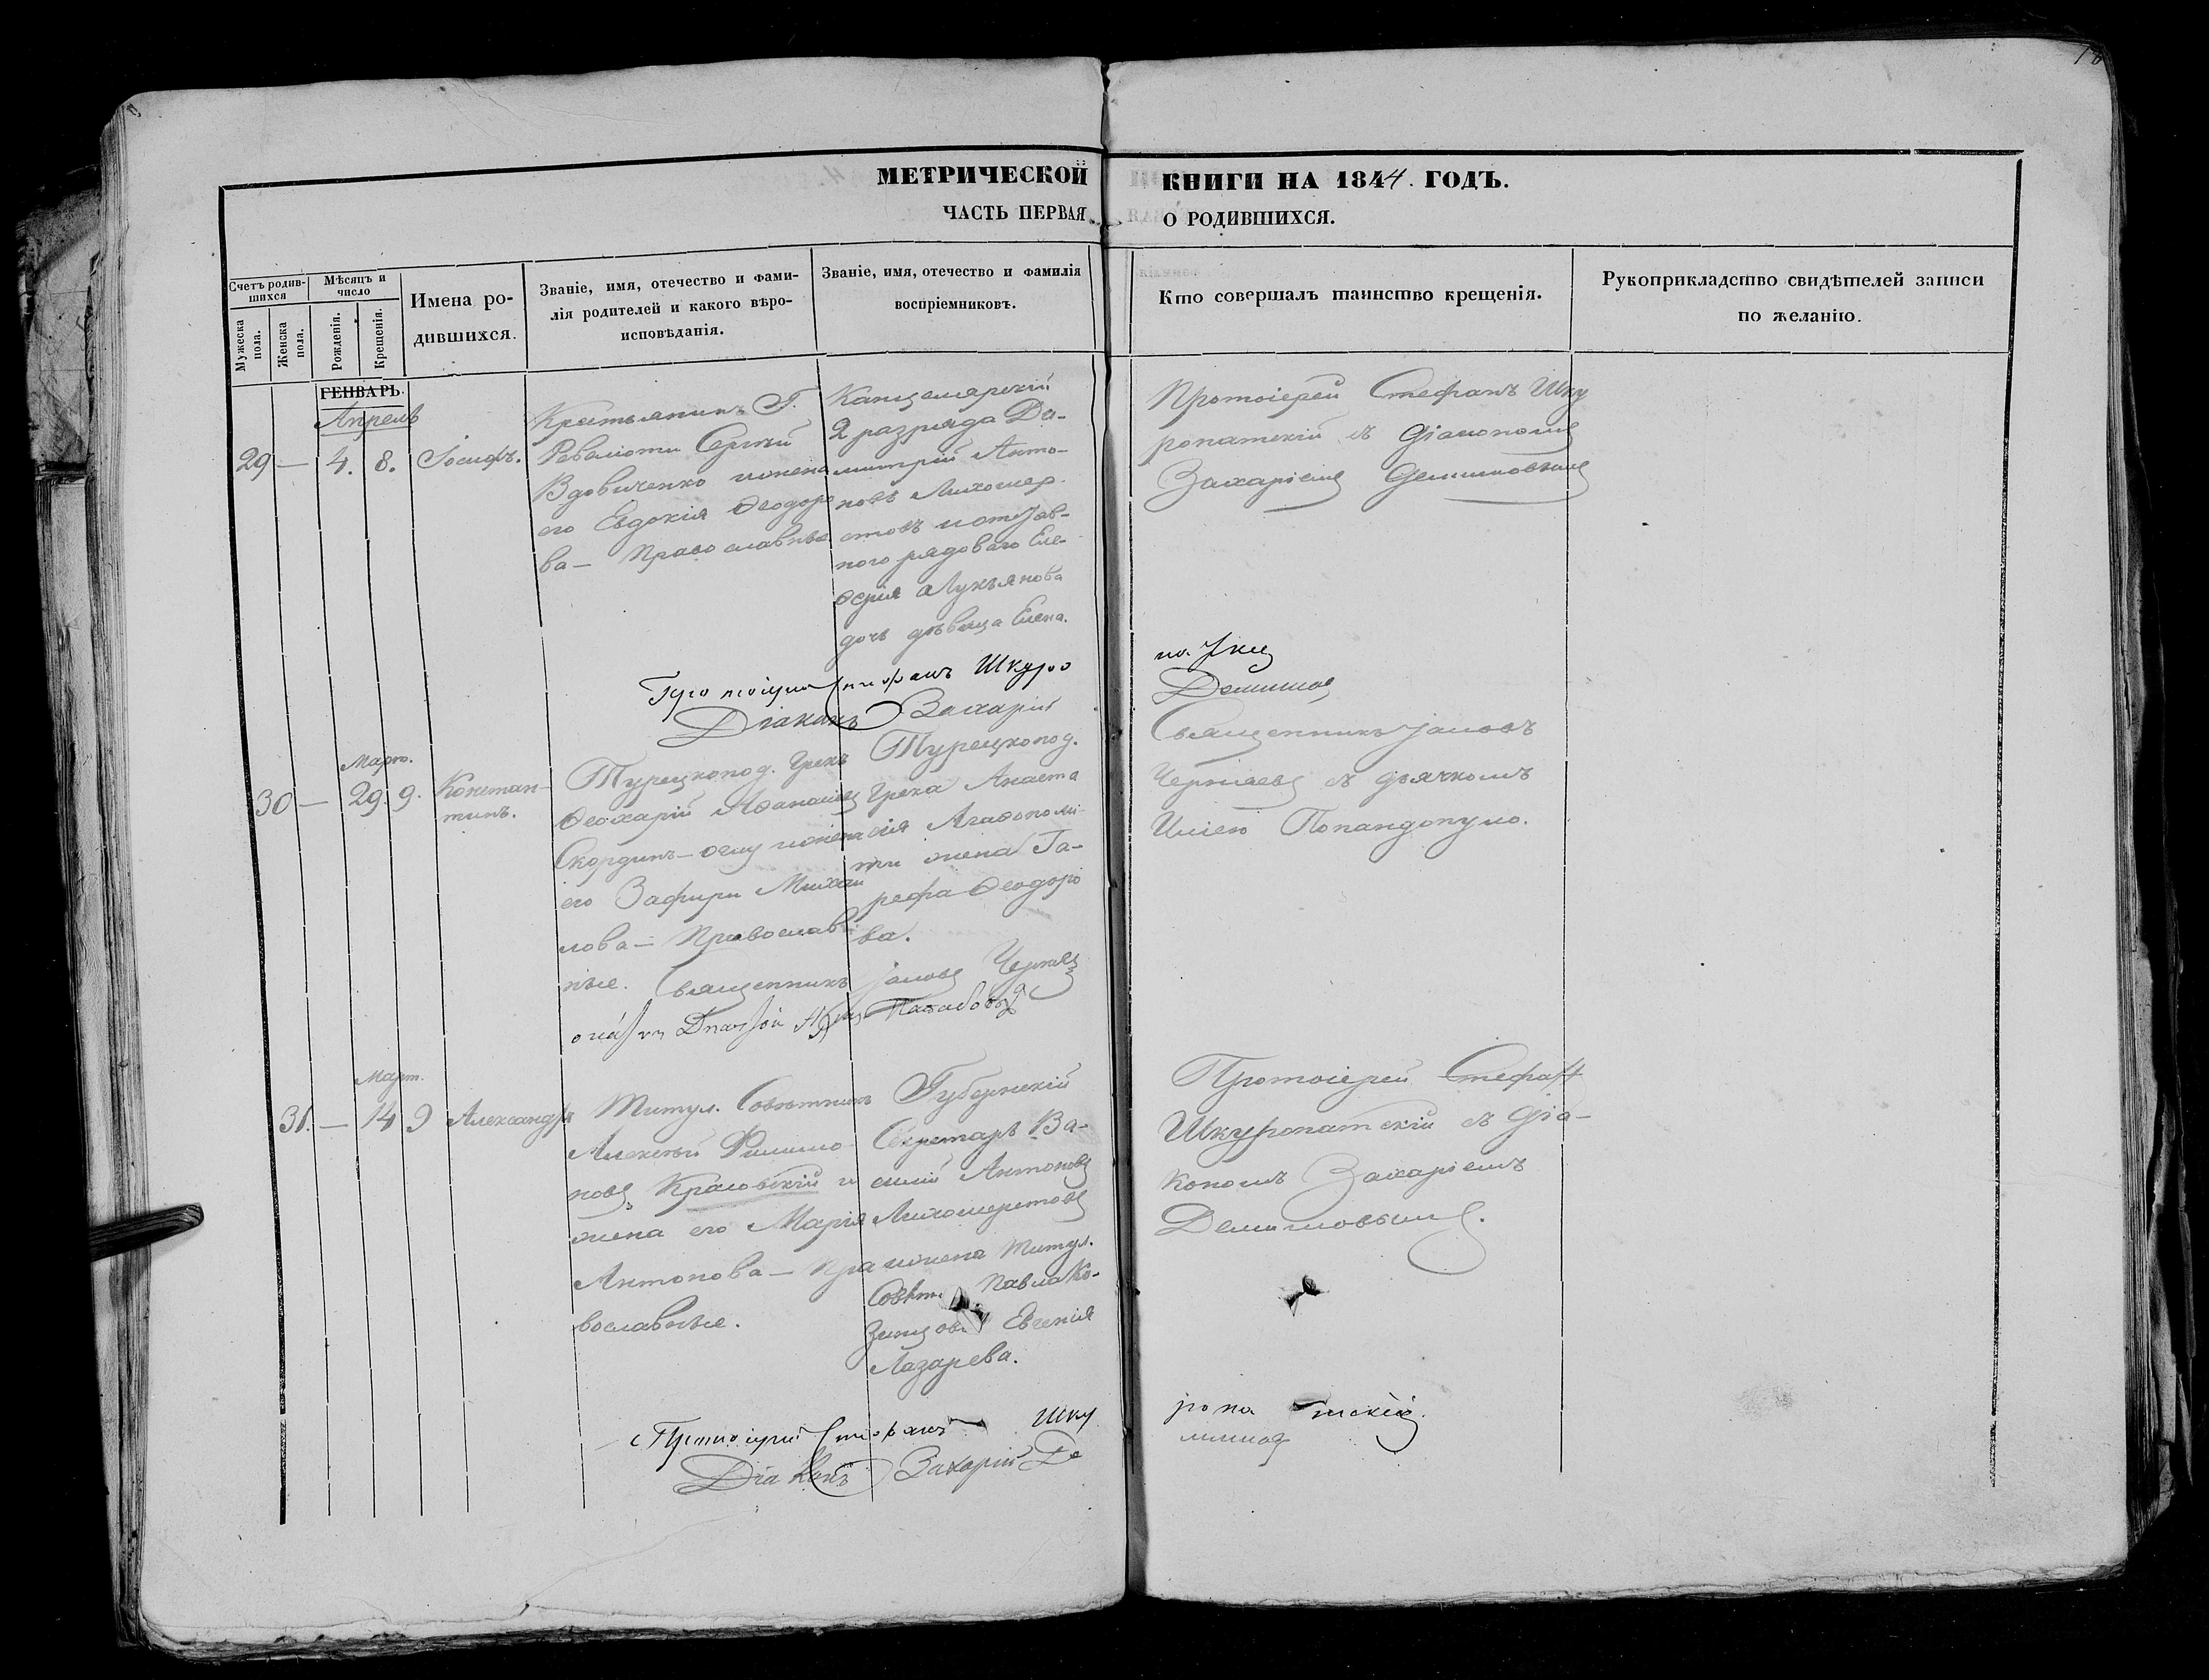 18
МЕТРИЧЕСКОЙ КНИГИ НА 1844. ГОДЪ.
ЧАСТЬ ПЕРВАЯ О РОДИВШИХСЯ.
Счетъ родив-
шихся
Мужеска пола.
Женска пола.
Мѣсяцъ и
число
Рожденія.
Крещенія.
Имена ро-
дившихся.
Званіе, имя, отечество и фами-
лія родителей и какого вѣро-
исповѣданія.
Званіе, имя, отечество и фамилія
воспріемниковъ.
Кто совершалъ таинство крещенія.
Рукоприкладство свидѣтелей записи
по желанію.
ГЕНВАРЬ.
Апрель
29 — 4. 8. Іосифъ.
Крестьянинъ Г.
Сергѣй
Вдовиченко и жена
его Евдокія Ѳеодоро
ва — Православные
Канцелярскій
2 разряда Ди-
митрій Анто-
новъ Лихошер-
стовъ и отстав-
ного рядоваго Еле-
ѳерія Лукьянова
дочь дѣвица Елена.
Протоіерей Стефанъ Шку
ропатскій съ Діакономъ
Захаріемъ Демимовымъ
Протоіерей Стефанъ Шкуро
Діаконъ Захарій
Март.
30 — 29. 9. Констан-
тинъ.
Турецкопод. Грекъ
Ѳеохарій Аѳанасіевъ
Скордин- и жена
его Зафири Михаи
лова — Православ
ные.
Турецкопод.
Грека Анаста
сія
жена Га-
рефа Ѳеодоро
ва.
Священникъ Іаковъ
Черняевъ съ дьячкомъ
Иліею Попандопуло.
Священникъ Іаковъ Черняевъ
Март.
31. — 14 9 Александръ
Титул. Совѣтникъ
Алексѣй Филимо-
новъ Красовскій и
жена его Марія
Антонова — Пра
вославные.
Губернскій
Секретарь Ва-
силій Антоновъ
Лихошерстовъ
и жена Титул.
Совѣт. Павла Ко-
Евгенія
Лазарева.
Протоіерей Стефан
Шкуропатскій съ Діа-
кономъ Захаріемъ
Демимовымъ.
Протоіерей Стефанъ Шку ропатскій.
Діаконъ Захарій Де мимовъ